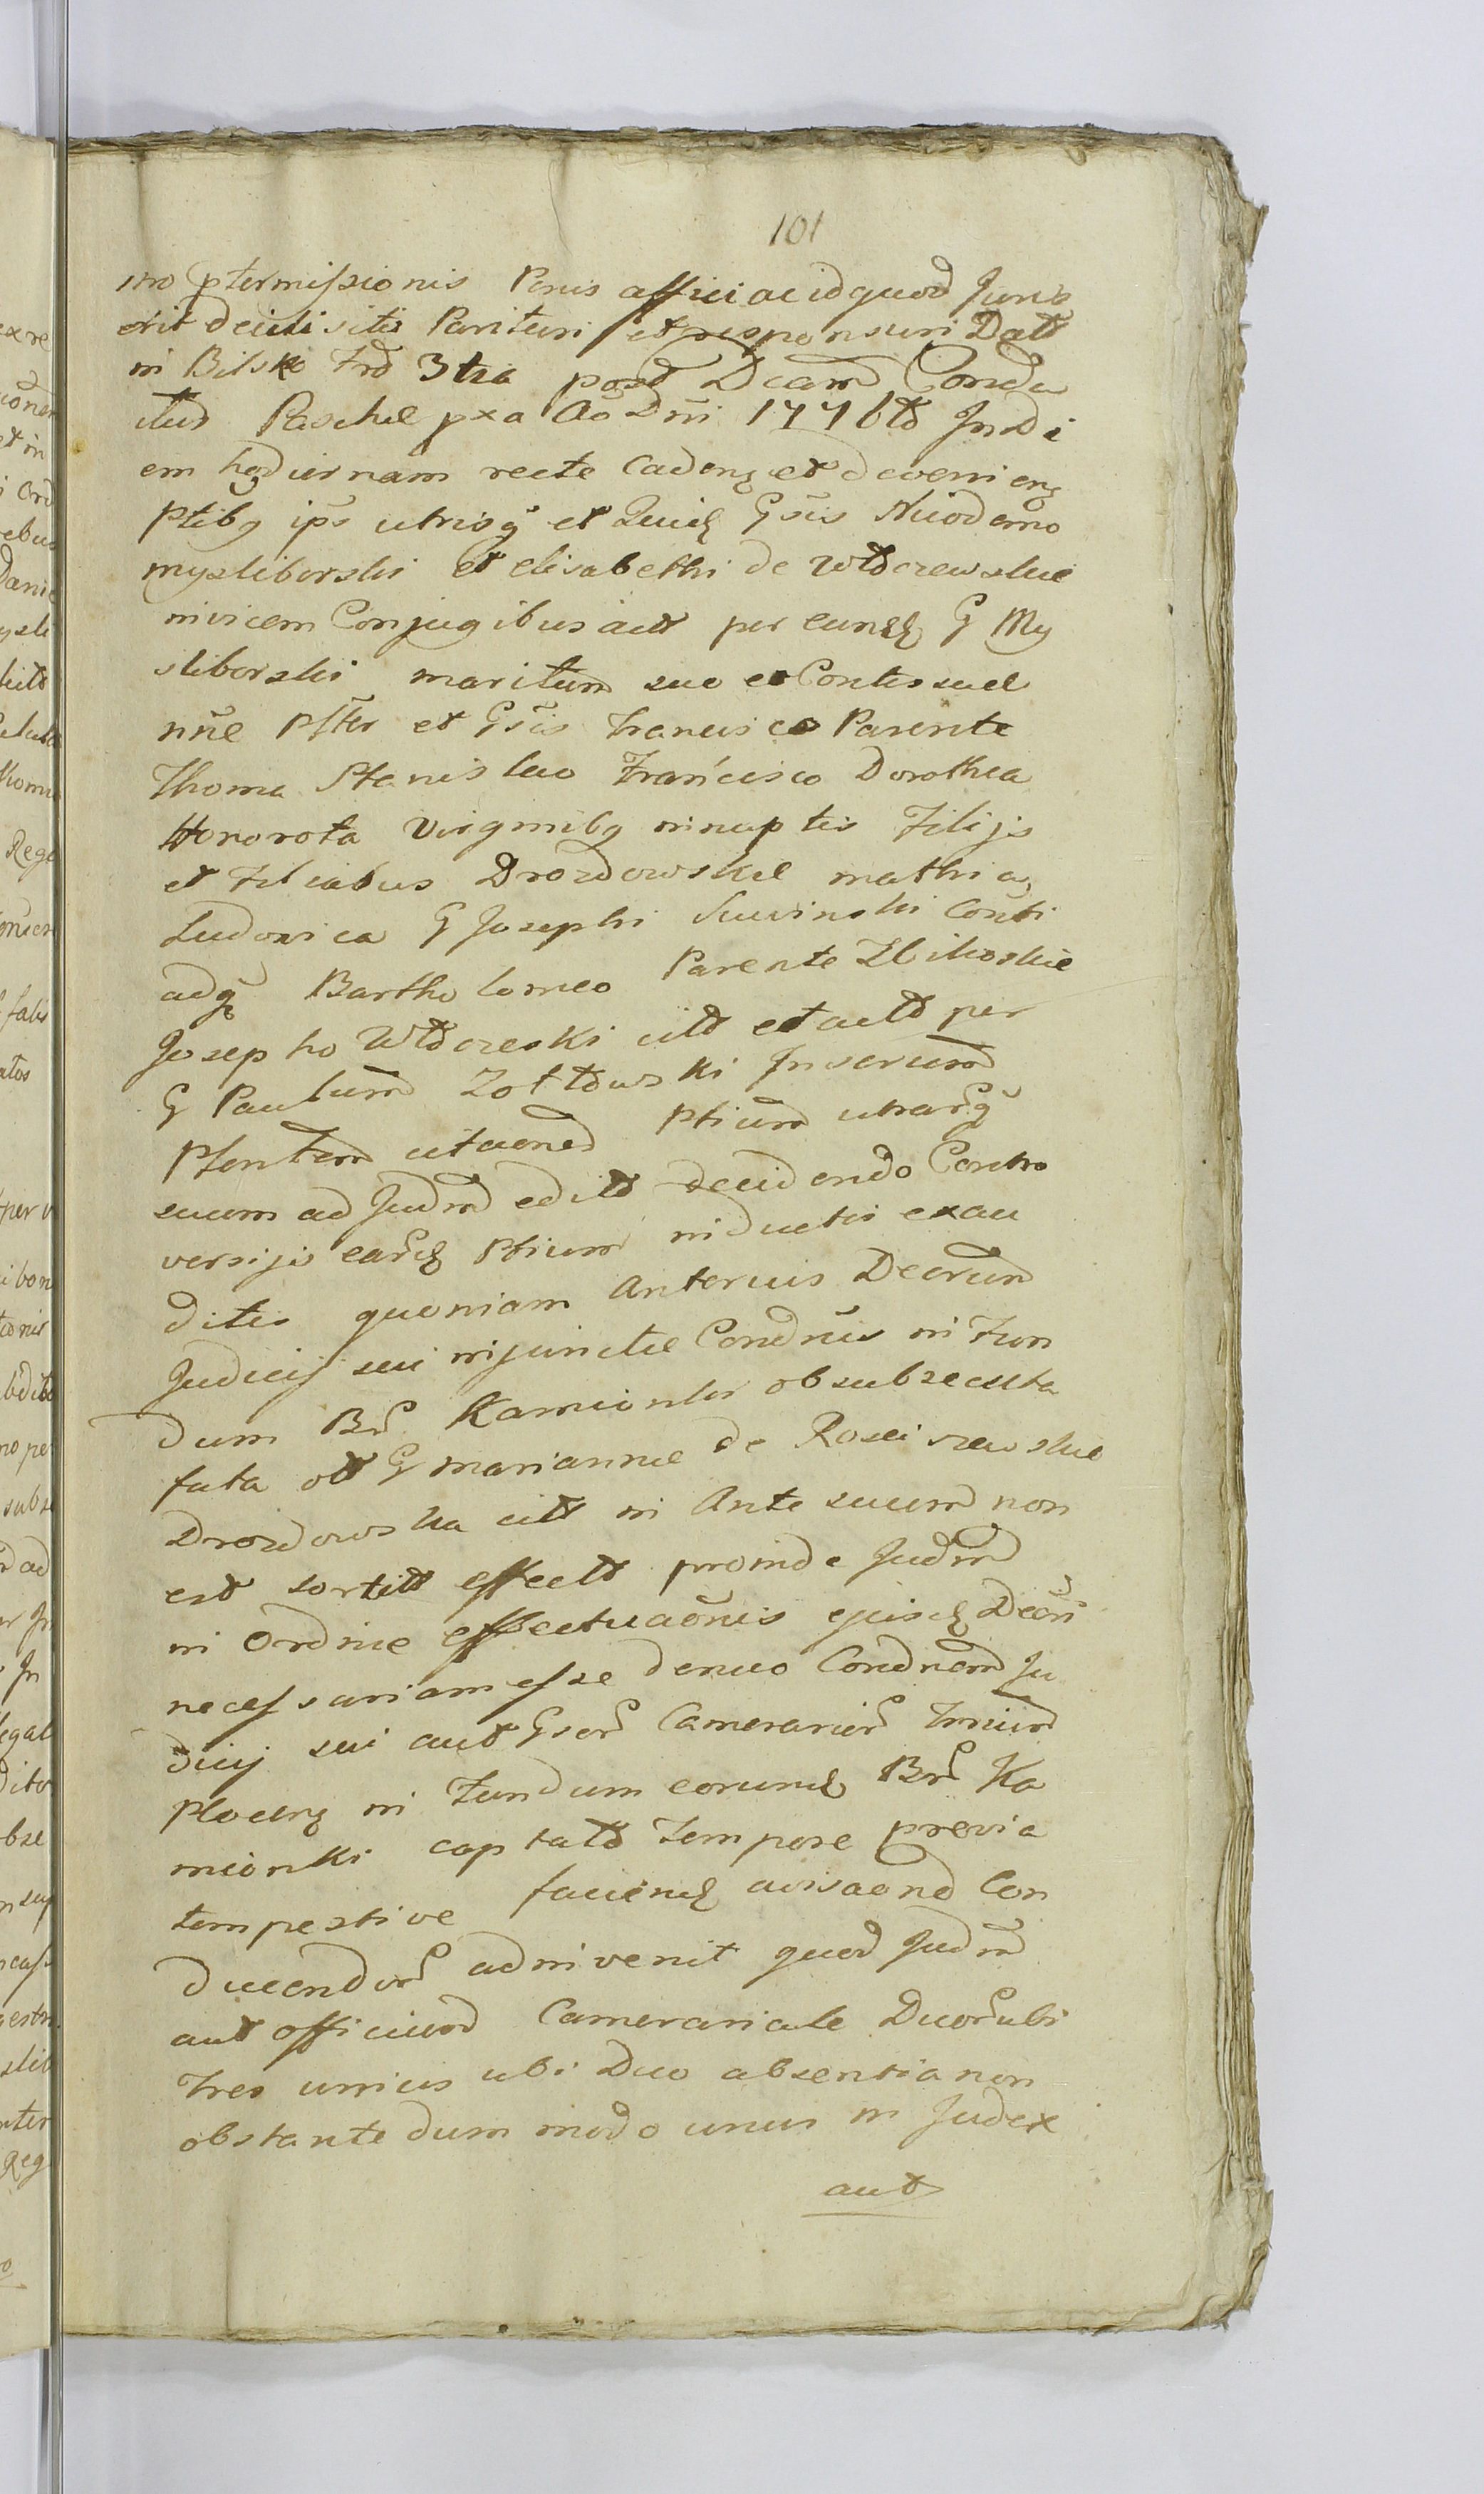 101
ptermissionis Penis affici ac id quod Juris
erit decidi sitis Parituri et responsuri Datt
in Bilsko Frd 3tia post Dcam Condu
ctus Paschae pxa Ao Dni 1776to In Di
em hodiernam recte Cadeng et deveni eng
Ptibq ips utrisq et Gsis Nicodemo
mysliborski et elisabethi de Wtdczewskie
invicem Conjugibus per eundq G My
sliborski maritum suo et Contes sual
nne et Gsis Francisco Parente
Thoma Stanislao Francisco Dorothea
Honorota Virginibq innuptis Filijs
et Filiabus Drozdowskie mathia
Ludovica G Josephi Suwinski Conti
adq Bartholomeo Parente Zbikoskie
Josepho Wtdczeski citt et actt per
G Paulum Zottowski Inserum
Psentem citaoned Ptium utrarq
suum ad Judmd editt decidendo Contro
versijs earq Ptium inductis exau
ditis quoniam Anterius Decrum
Judicij sui injunctae Condnis in Fun
dum Br Kamionki obsubsecuta
fata ott G mariannae de Rosciszewskie
Drozdowska citt in Ante suum non
est sortitt effectt proinde Judmd
in Ordine effectuaonis ejusq Decri
necessariam esse denuo Condnemd Ju
dicij sui aut Gsor Camerarior Trrium
Ploceng in Fundum eorumq Br Ka
mionki captatt tempore previa
tempestive faciendq avisaoned Con
ducendor adinvenit quod Judmd
aut officiumd Camerariale Duor ubi
tres unius ubi Duo absentia non
obstante dum modo unus in Judex
aut